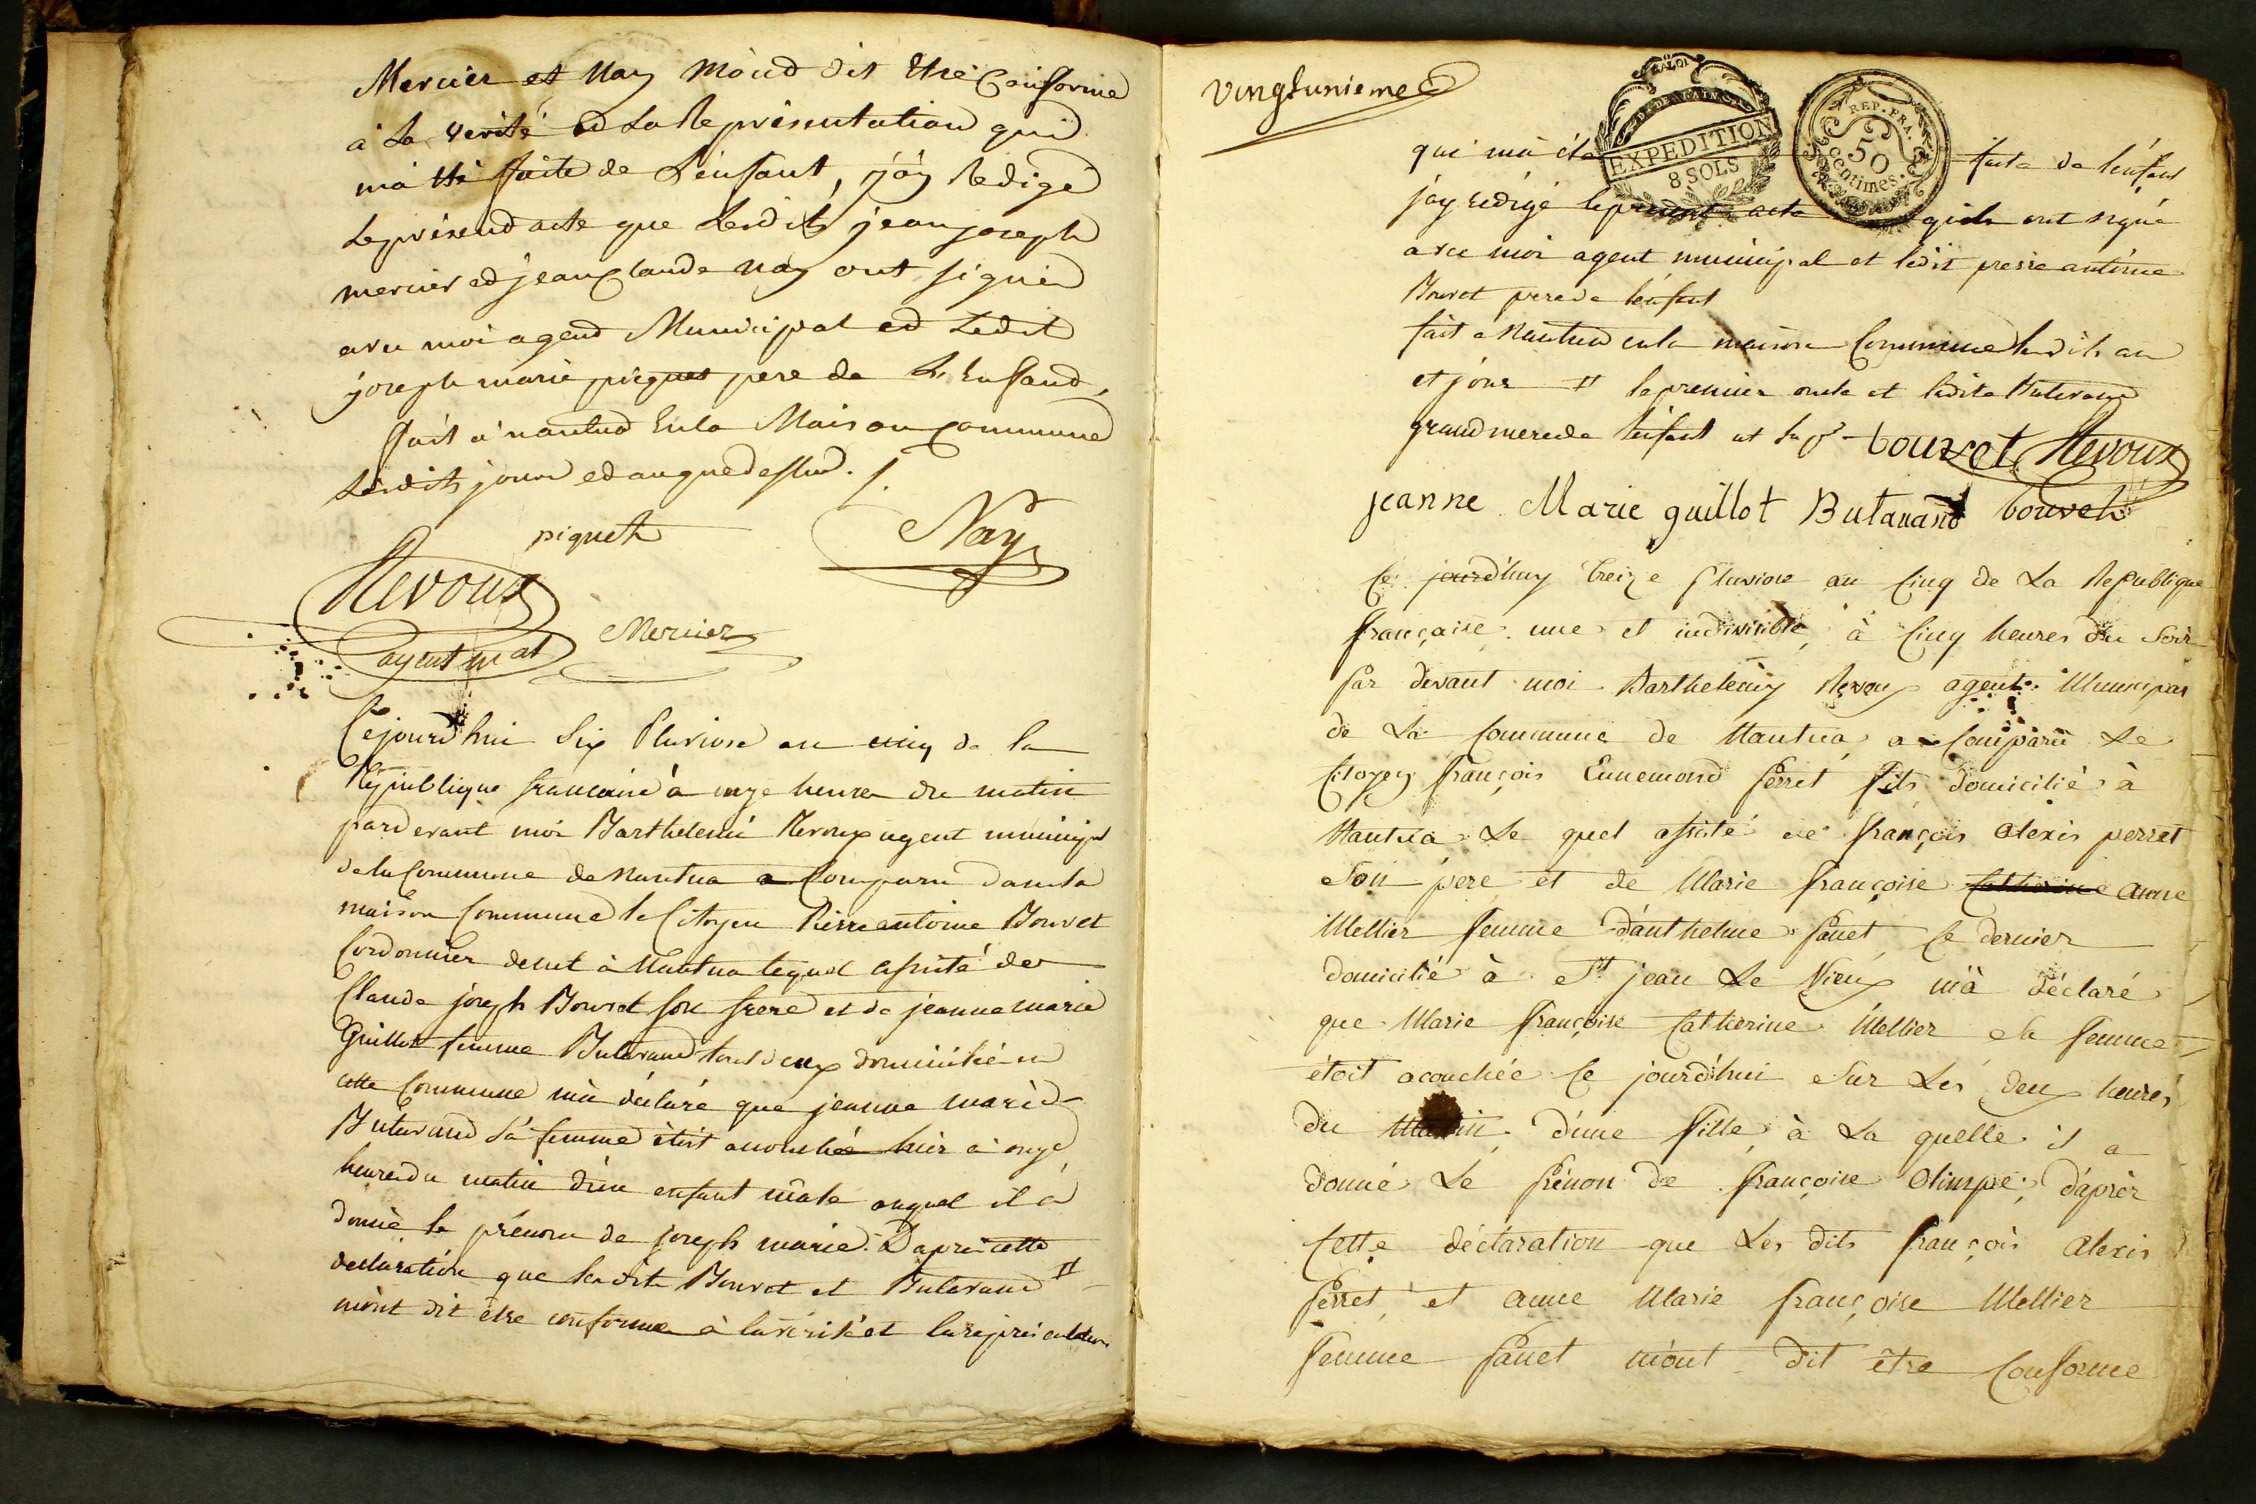 Mercier et Nay m'ond dit Etre Conforme
à La verité Ed La Représentation qui
m'a été faite de L'enfant, j'ay Redigé
Le présend acte que Lesdits jean joseph
mercier ed jean Claude Nay ont signéd
avec moi agend Municipal ed Ledit
joseph marie piquet pere de L'Enfand,
fait à nantua En la Maison Commune
Lesdits jour ed an que dessus.
piquet Nay
Revoux
agent m al Mercier
Cejourd'hui Six Pluviose an cinq de la
République francaise à onze heures du matin
pardevant moi Barthelemi Revoux agent municipal
de la Commune de Nantua a Comparu dans la
maison Commune le Citoyen Pierre antoine Bouvet
Cordonnier demt à Nantua lequel assisté de
Claude joseph Bouvet son frere et de jeanne marie
Guillot femme Butavand tout deux domiciliés en
cette Commune m'a déclaré que jeanne marie
Butavand sa femme étoit accouchée hier à onze
heures du matin d'un enfant mâle auquel il a
donné le prénom de joseph marie. D'après cette
declaration que lesdits Bouvet et Butavand #
m'ont dit être conforme à la vérité et la représentation
vingtunieme
EXPEDITION
8 SOLS
REP. FRA.
50
centimes.
qui m'a été faite de l'enfant
j'ay redigé le présent acte qu'ils ont signé
avec moi agent municipal et ledit pierre antoine
Bouvet pere de l'enfant
fait a Nantua en la maison Commune lesdits an
et jour # le premier oncle et ladite Butavand
grand mere de l'enfant bouvet Revoux
jeanne Marie guillot Butavand bouvet
Ce jourd'huy treize Pluviose an Cinq de La Republique
française une et indivisible, à Cinq heures du Soir
Par devant moi Barthelemy Revoux agent Municipal
de La Commune de Nantua a Comparu Le
Citoyen françois Ennemond Perret fils domicilié à
Nantua Le quel assisté de françois Alexis perret
Son pere et de Marie françoise Catherine anne
Mellier femme d'anthelme Panet Ce dernier
domicilié à St jean Le Vieux m'a déclaré
que Marie françoise Catherine Mellier Sa femme
étoit acouchée Ce jourd'hui Sur Les deux heures
du Matin d'une fille à La quelle il a
donné Le Prénon de françoise Olimpe; d'après
Cette déclaration que Les dits françois Alexis
Perret, et anne Marie françoise Mellier
femme Panet m'ont dit être Conforme